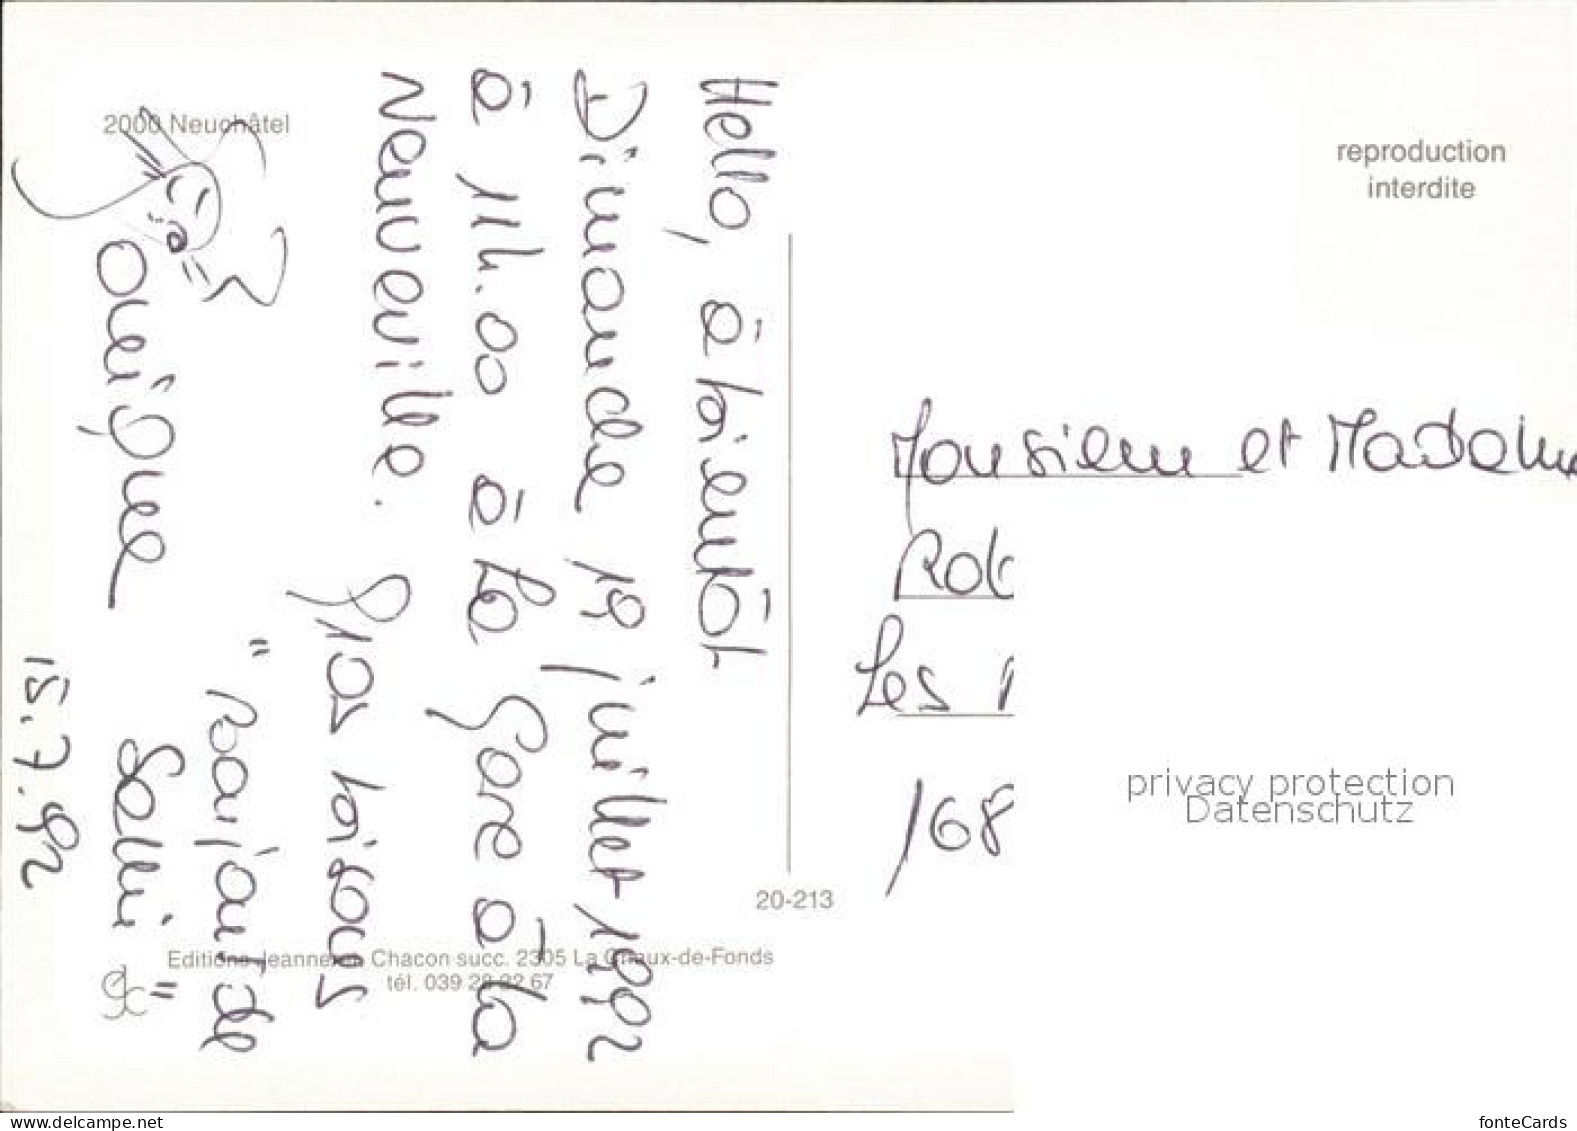 2000 Neuchâtel
Hello, à bientôt
Dimanche 19 juillet 1992
à 14.00 à la gare à la
Neuveville.
gros bisous
"Parfait de
Salli"
15.7.92
reproduction
interdite
Monsieur et Madame
Les
168
20-213
Editions Jeanneret, Chacon succ. 2305 La Chaux-de-Fonds
tél. 039 28 32 67
privacy protection
Datenschutz
www.delcampe.net
fonteCards